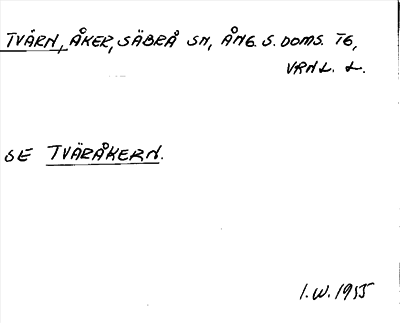 TVÄRN, ÅKER, SÄBRÅ SN, ÅNG. S. DOMS. TG,
VRNL. L.
SE TVÄRÅKERN.
I.W. 1955